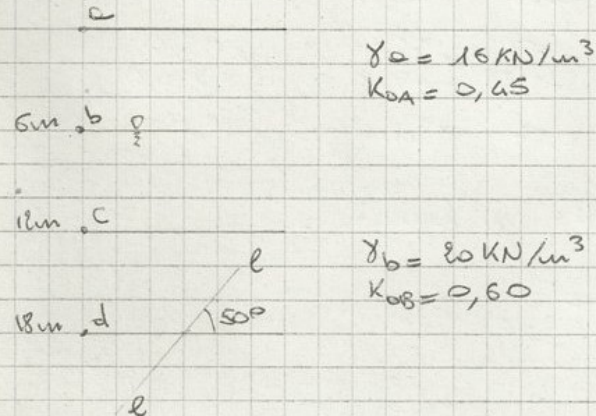 a
γa = 16 KN/m³
KOA = 0,45
6m b
12m c
γb = 20 KN/m³
KOB = 0,60
l
18m d 50°
l